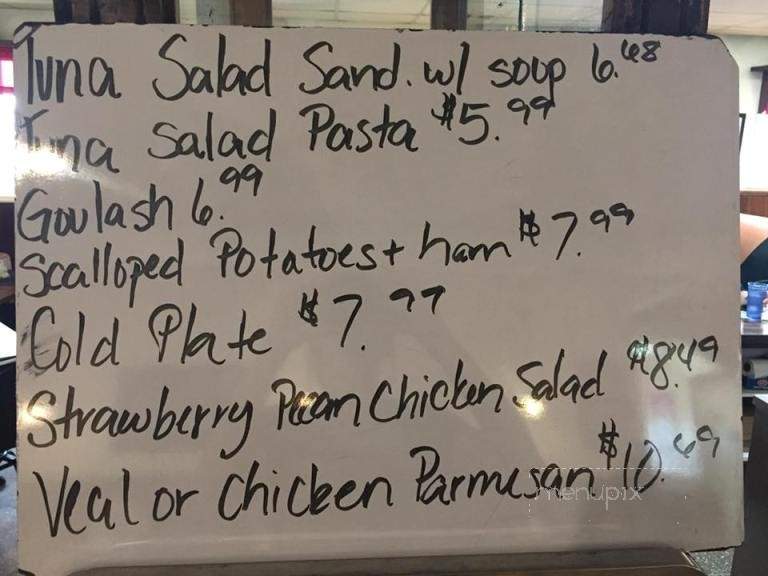 Tuna Salad Sand. w/ soup 6.48
Tuna Salad Pasta $5.99
Goulash 6.99
Scalloped Potatoes + ham $7.99
Cold Plate $7.99
Strawberry Pecan Chicken Salad $8.49
Veal or Chicken Parmesan $10.49
menupix